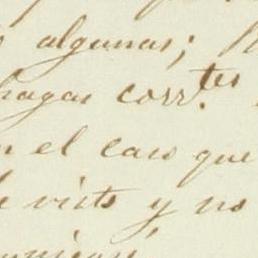 algunas;
hagas corr.tes
el caso que
visto y no